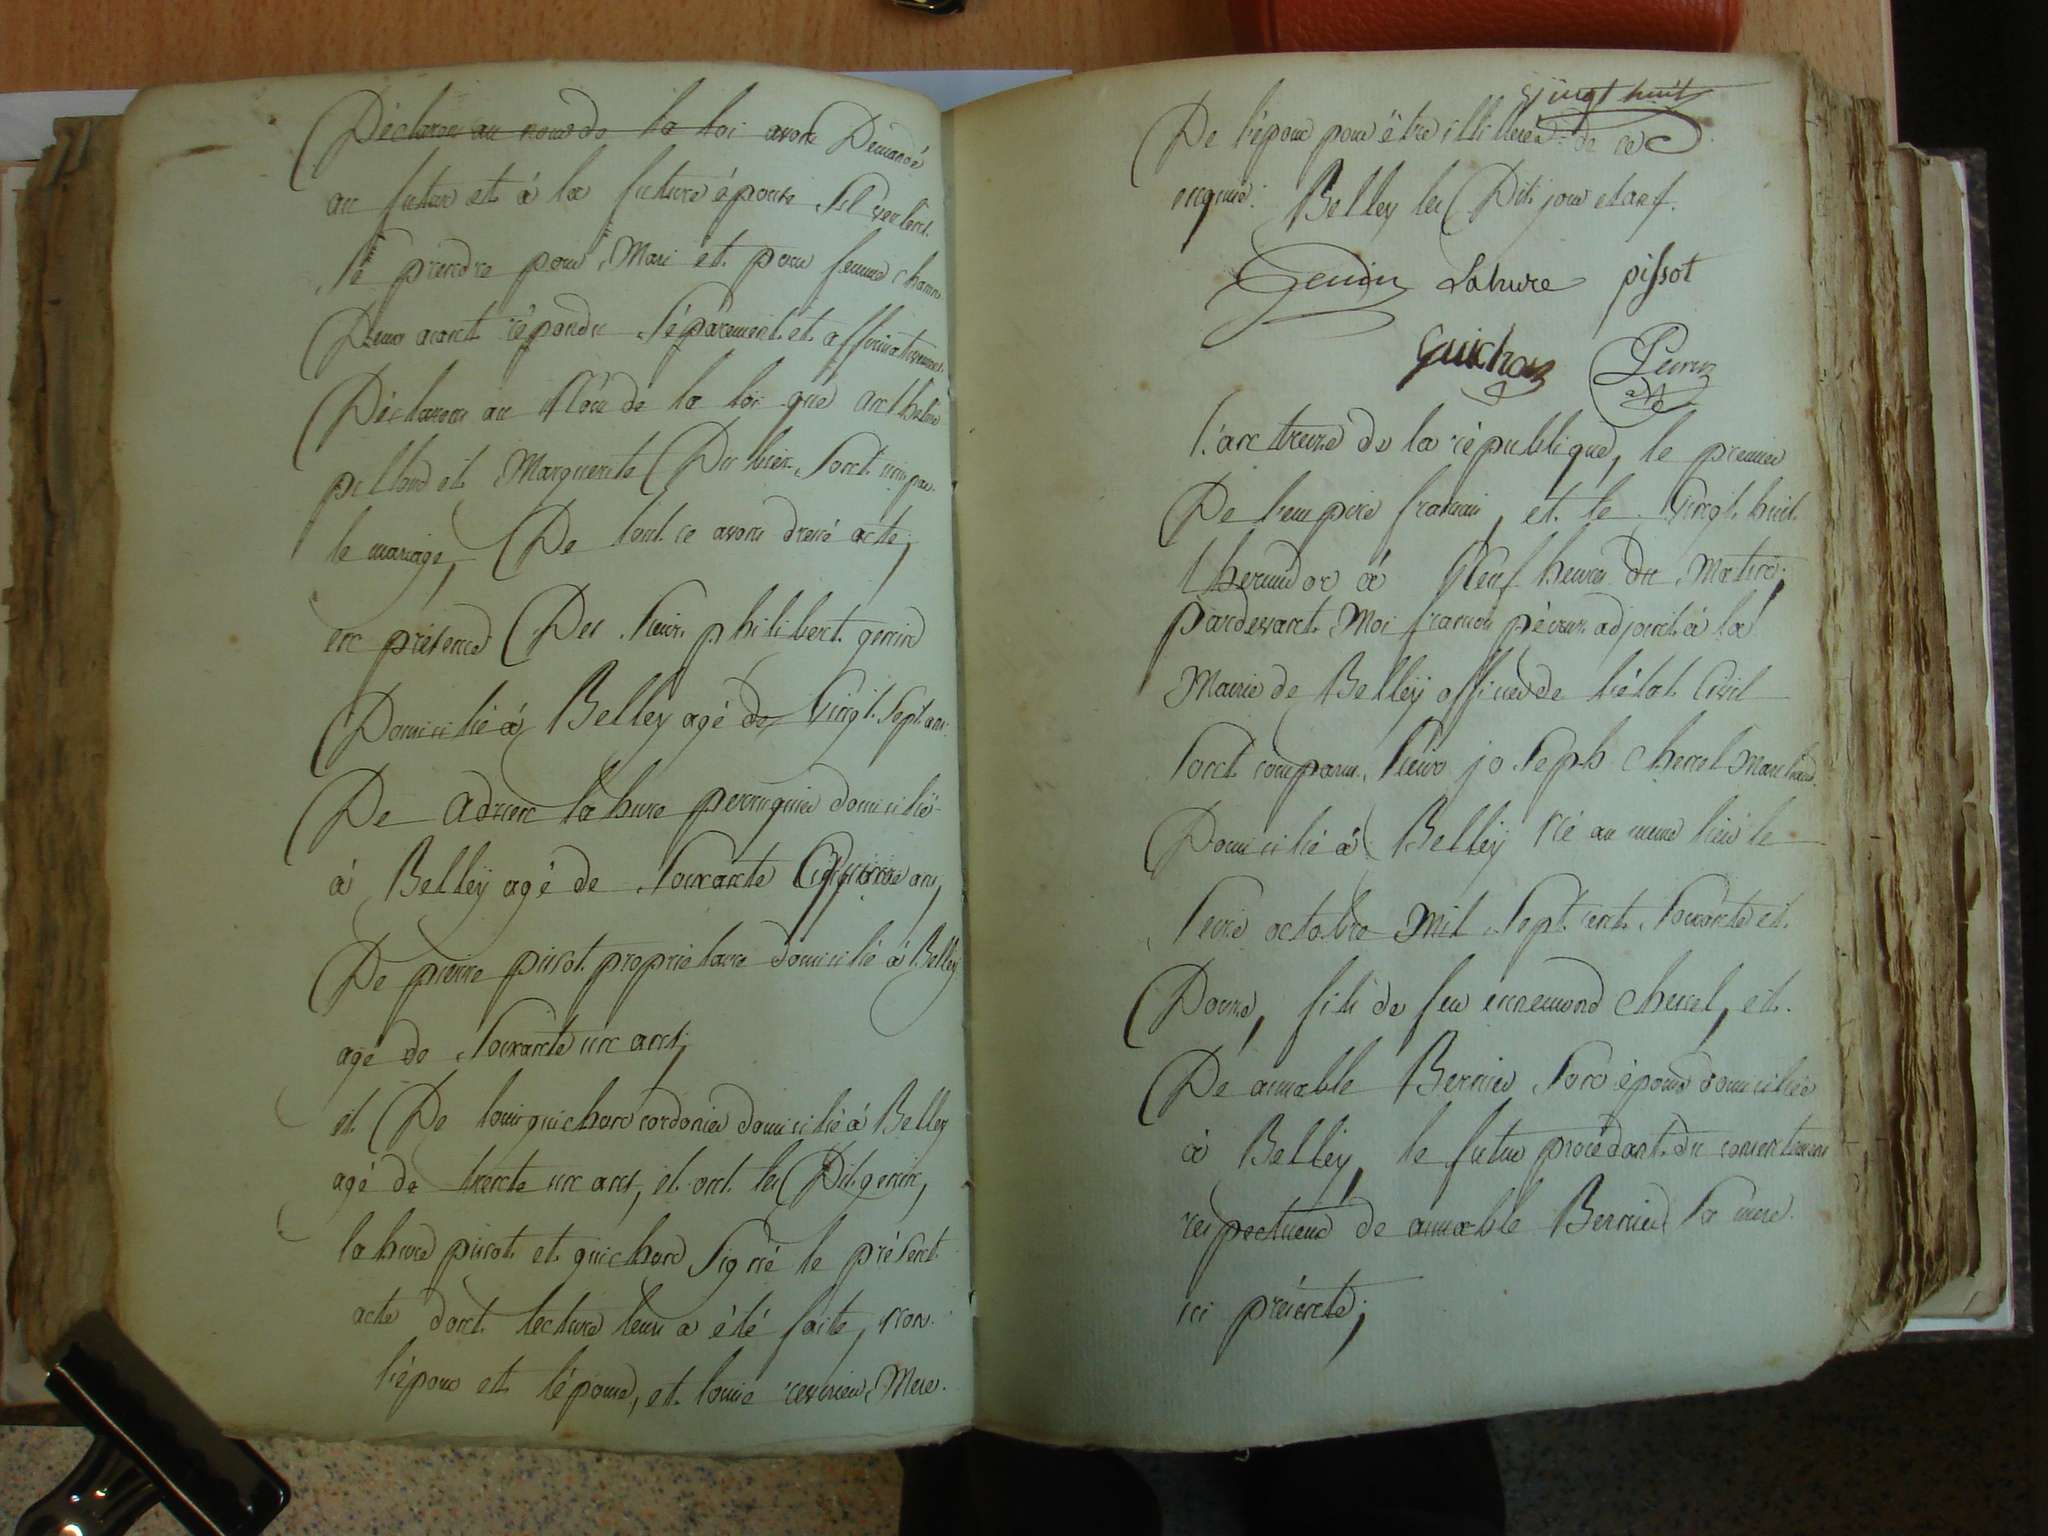 Déclarons au nom de la loi avons Demandé
au futur et à la future épouse s'il veulent
se prendre pour Mari et pour femme chacun
D'eux ayant répondu séparément et affirmativement
Déclarons au Nom de la loi que anthelme
et Marguerite Du bier sont unis par
le mariage, De tout ce avons dressé acte,
en présence Des sieurs philibert genin
Domicilié à Belley agé de vingt sept ans
De adrien lahure perruquier domicilié
à Belley agé de soixante quinze ans,
De pierre pissot proprietaire domicilié à Belley
agé de soixante un ans,
et De louis guichon cordonier domicilié à Belley
agé de trente un ans, et ont les Dits genin,
lahure pissot et guichon signé le présent
acte dont lecture leur a été faite, non
l'époux et l'épouse, et louise Mere
vingt huit
De l'époux pour être illitteres de ce
enquis. Belley les Dits jour et an f.
Genin Lahure pissot
Guichon Peron
l'an treize de la république, le premier
De l'empire français, et le vingt huit
thermidor à Neuf heures du Matin,
Pardevant Moi françois péron adjoint à la
Mairie de Belley officier de l'état Civil
sont comparus sieur joseph Marchand
Domicilié à Belley Né au même lieu le
seize octobre Mil sept cent soixante et
Douze, fils de feu ennemond et
De aimable Bernier son épouse domiciliée
à Belley, le futur procédant du consentement
respectueux de aimable Bernier sa mere
ici présente,